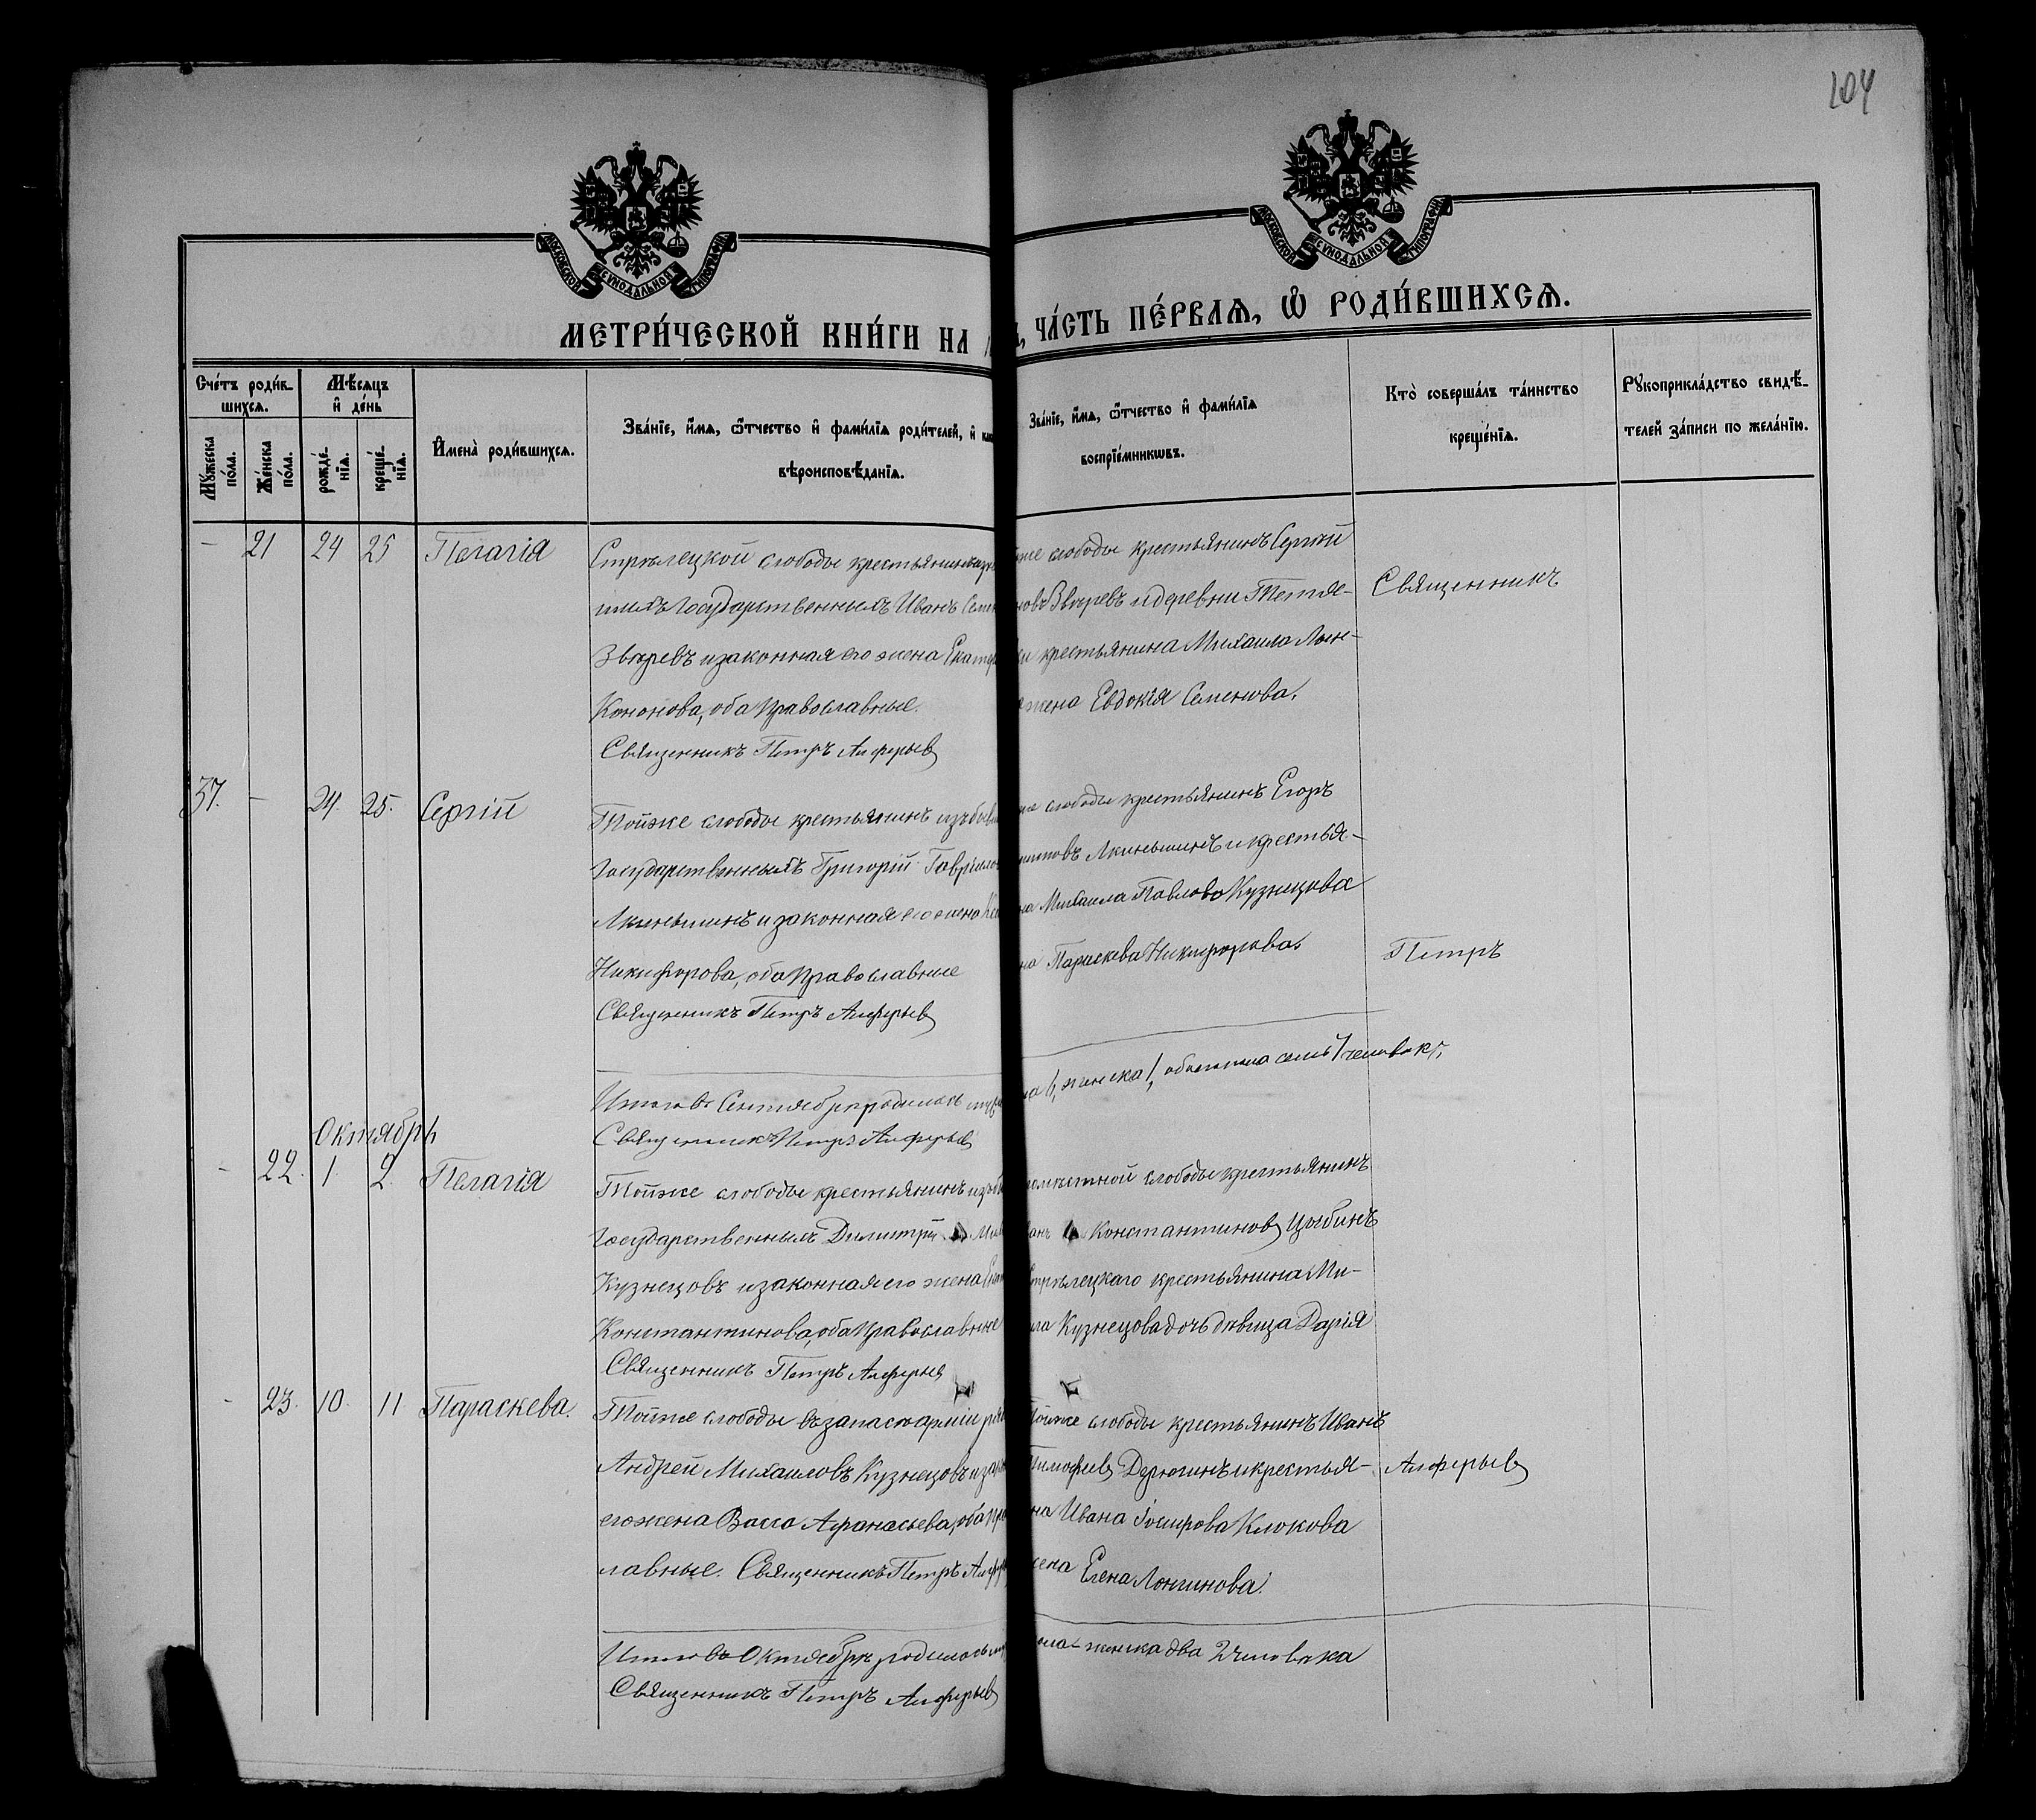 104
МОСКОВСКОЙ СѴНОДАЛЬНОЙ ТИПОГРАФІИ
МОСКОВСКОЙ СѴНОДАЛЬНОЙ ТИПОГРАФІИ
МЕТРИ́ЧЕСКОЙ КНИ́ГИ НА
ЧА́СТЬ ПЕ́РВАѦ, Ѽ РОДИ́ВШИХСѦ.
Сче́тъ роди́в-
шихсѧ.
Мꙋ́жеска по́ла.
Же́нска по́ла.
Мѣ́сѧцъ
и҆ де́нь
рожде́-
нїѧ.
креще́-
нїѧ.
И҆мена̀ роди́вшихсѧ.
Зва́нїе, и҆́мѧ, ѻ҆́тчество и҆ фами́лїѧ роди́телей, и҆
вѣроисповѣ́данїѧ.
Зва́нїе, и҆́мѧ, ѻ҆́тчество и҆ фами́лїѧ
воспрїе́мникѡвъ.
Кто̀ соверша́лъ та́инство
креще́нїѧ.
Рꙋкоприкла́дство свидѣ́-
телей за́писи по жела́нїю.
- 21 24 25 Пелагія
Стрѣлецкой слободы крестьянинъ
шихъ Государственныхъ Иванъ
Звѣревъ и законная его жена
Кононова, оба православные.
Священникъ Петръ Алферьев
слободы крестьянинъ Сергѣй
Звѣревъ и деревни
крестьянина Михаила
жена Евдокія Семенова.
Священникъ
37. - 24. 25. Сергій
Тойже слободы крестьянинъ изъ
Государственныхъ Григорій
Акиньшинъ и законная его жена
Никифорова, оба православные
Священникъ Петръ Алферьев
слободы крестьянинъ Егоръ
Акиньшинъ и крестья-
Михаила Павлова Кузнецова
Параскева Никифорова.
Петръ
Итого въ Сентябрѣ родилось
Священникъ Петръ Алферьев
женска 1, обоего пола семь 7 человекъ.
Октябрь
- 22. 1. 2. Пелагія
Тойже слободы крестьянинъ
Государственныхъ Димитрій
Кузнецовъ и законная его жена
Константинова, оба православные
Священникъ Петръ Алферьев
слободы крестьянинъ
Константинов Цыбинъ
Стрѣлецкаго крестьянина Ми-
Кузнецова дочь девица Дарія
- 23. 10. 11 Параскева.
Тойже слободы въ запасе арміи
Андрей Михаиловъ Кузнецовъ и
его жена Васса Афанасьева, оба
лавные. Священникъ Петръ
Тойже слободы крестьянинъ Иванъ
Тимофеев Дерюгинъ и крестья-
на Ивана Кłокова
жена Елена Лонгинова.
Алферьев
Итого въ Октябрѣ родилось
Священникъ Петръ Алферьев
женска два 2 человѣка